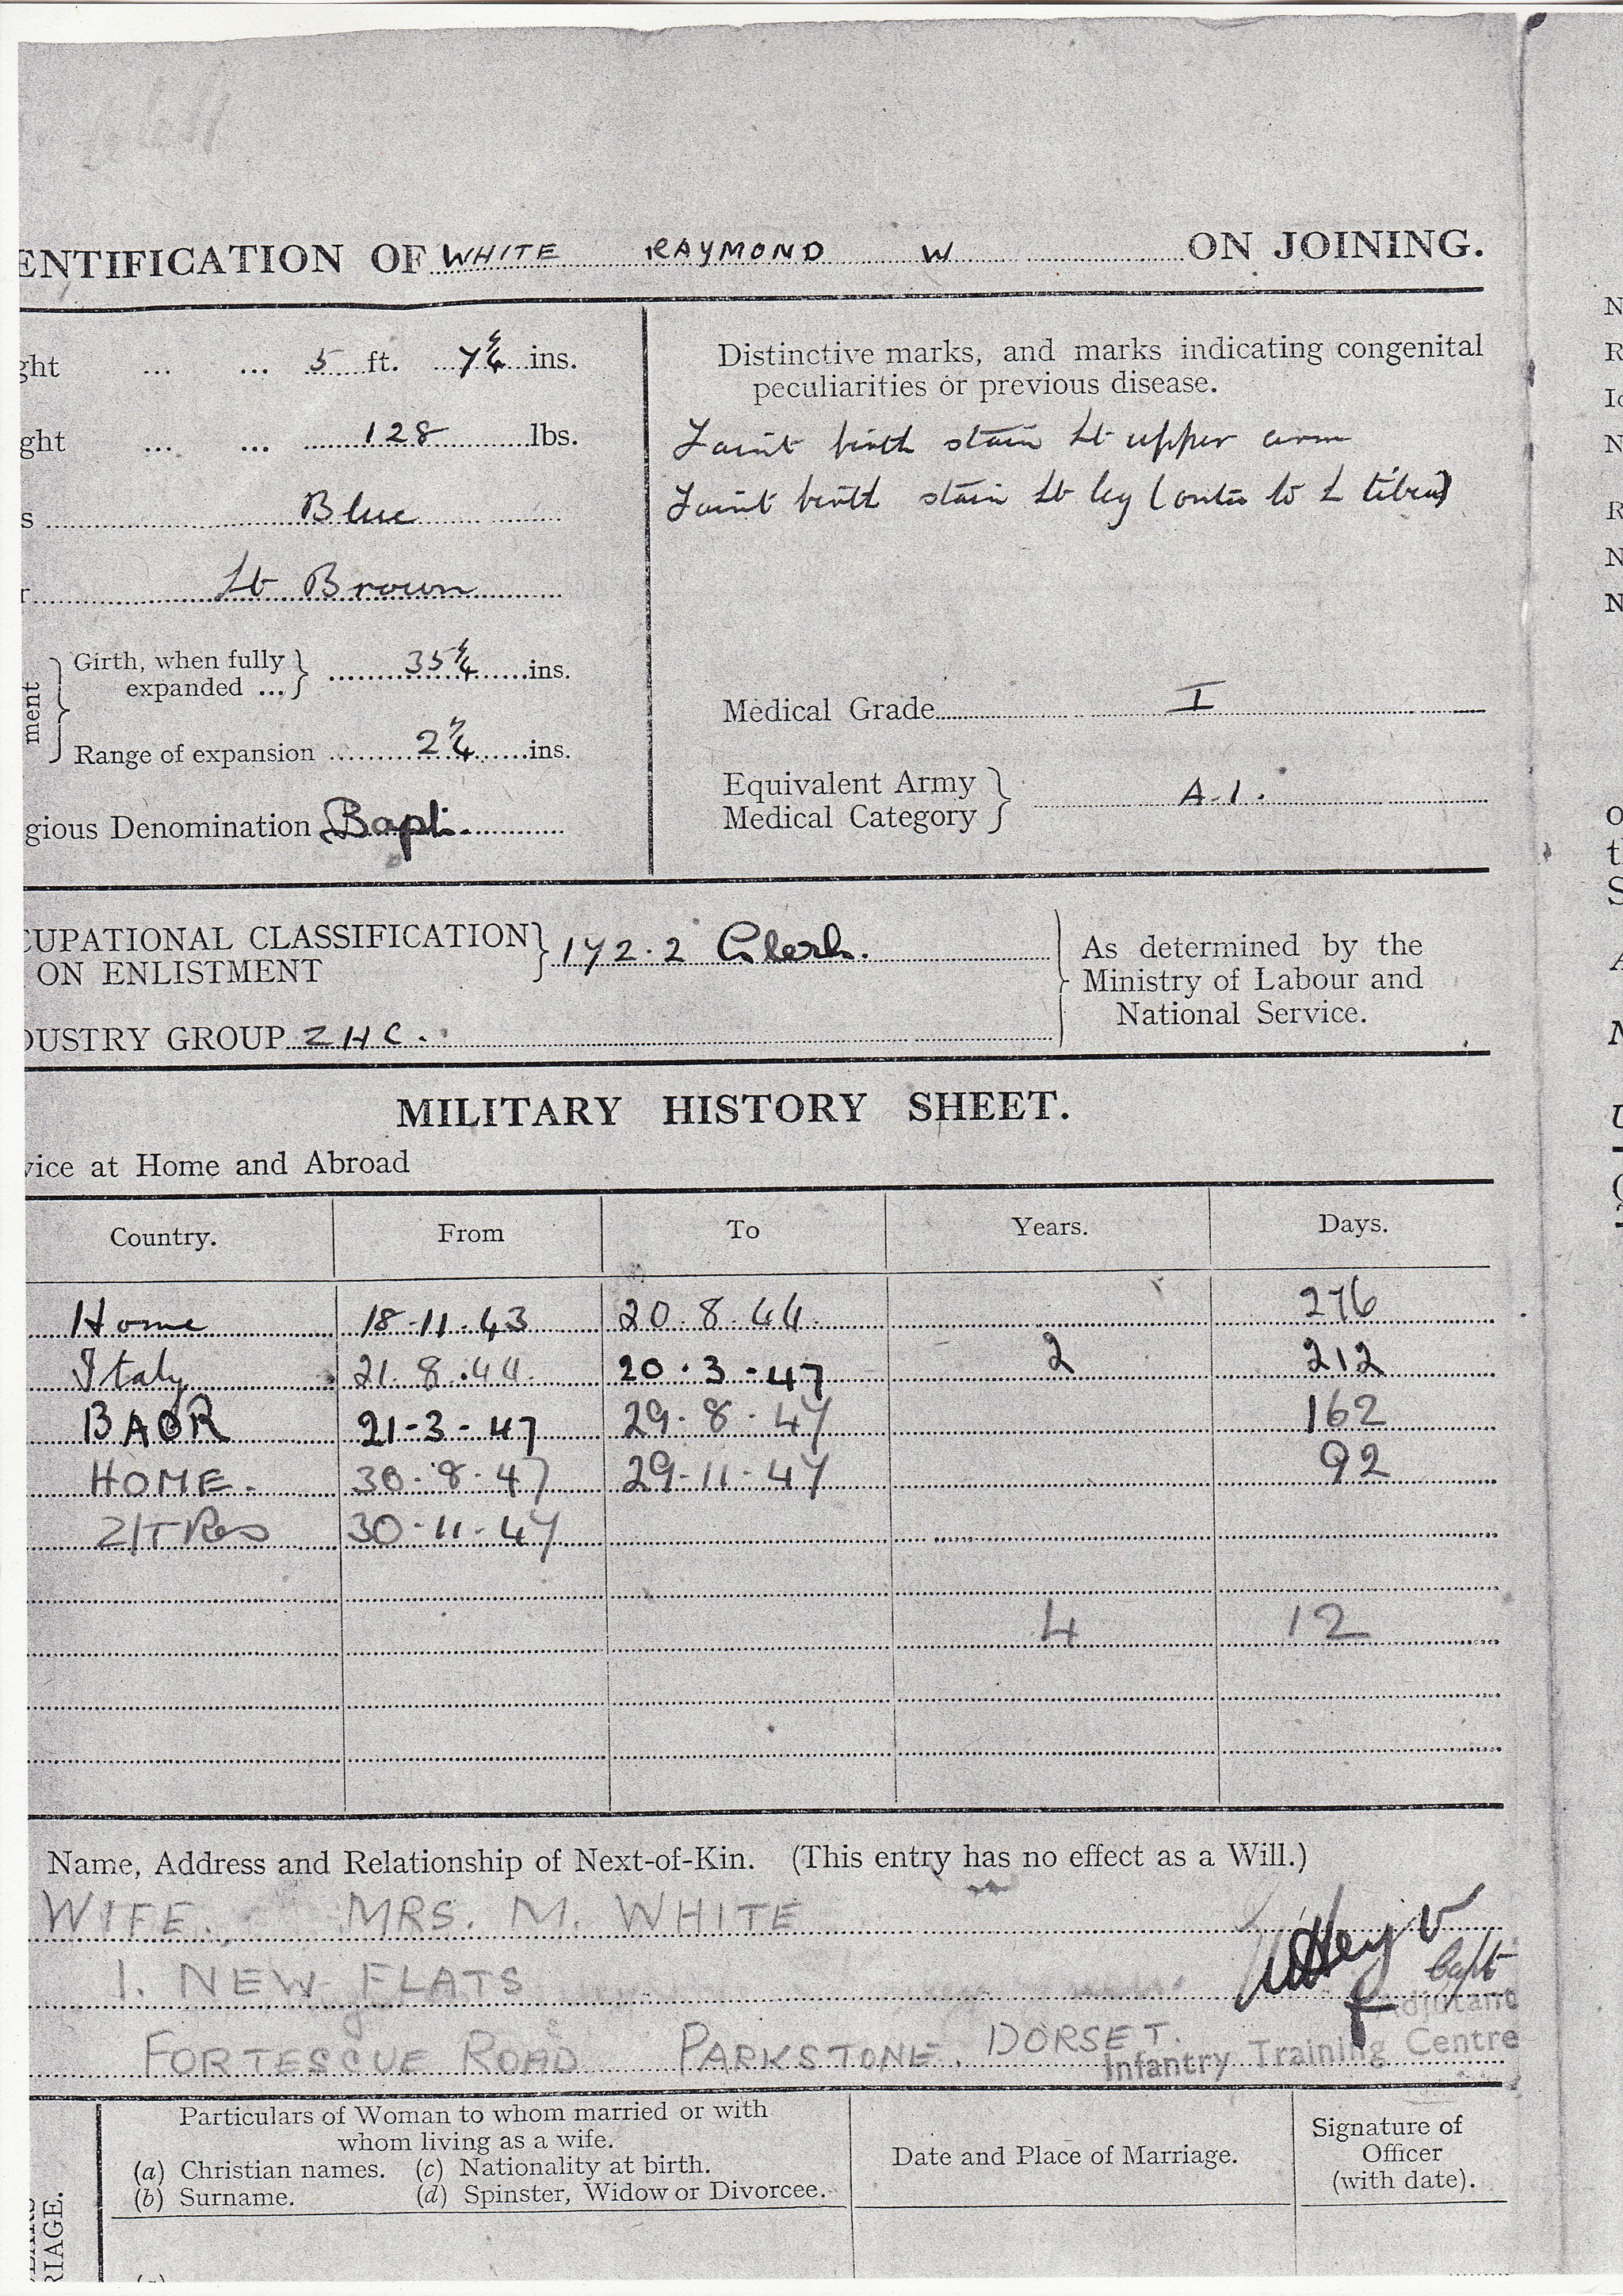 ENTIFICATION OF WHITE RAYMOND W ON JOINING.
ght ... ... 5 ft. 7¼ ins.
ght ... ... 128 lbs.
s Blue
r Lt Brown
ment
Girth, when fully expanded ... } 35¼ ins.
Range of expansion 2¼ ins.
gious Denomination Bapt.
Distinctive marks, and marks indicating congenital
peculiarities or previous disease.
Faint birth stain Lt upper arm
Faint birth stain Lt leg (outer to L tibia)
Medical Grade I
Equivalent Army
Medical Category } A.1.
CUPATIONAL CLASSIFICATION
ON ENLISTMENT } 172.2 Clerk.
DUSTRY GROUP ZHC.
As determined by the
Ministry of Labour and
National Service.
MILITARY HISTORY SHEET.
vice at Home and Abroad
Country. From To Years. Days.
Home 18-11-43 20.8.44. 276
Italy 21.8.44. 20.3-47 2 212
BAOR 21-3-47 29-8-47 162
HOME. 30-8-47 29-11-47 92
Z/T Res 30-11-47
4 12
Name, Address and Relationship of Next-of-Kin. (This entry has no effect as a Will.)
WIFE. MRS. M. WHITE
1. NEW FLATS
Capt
Adjutant
FORTESCUE ROAD PARKSTONE. DORSET.
Infantry Training Centre
RIAGE.
Particulars of Woman to whom married or with
whom living as a wife.
(a) Christian names. (c) Nationality at birth.
(b) Surname. (d) Spinster, Widow or Divorcee.
Date and Place of Marriage.
Signature of
Officer
(with date).